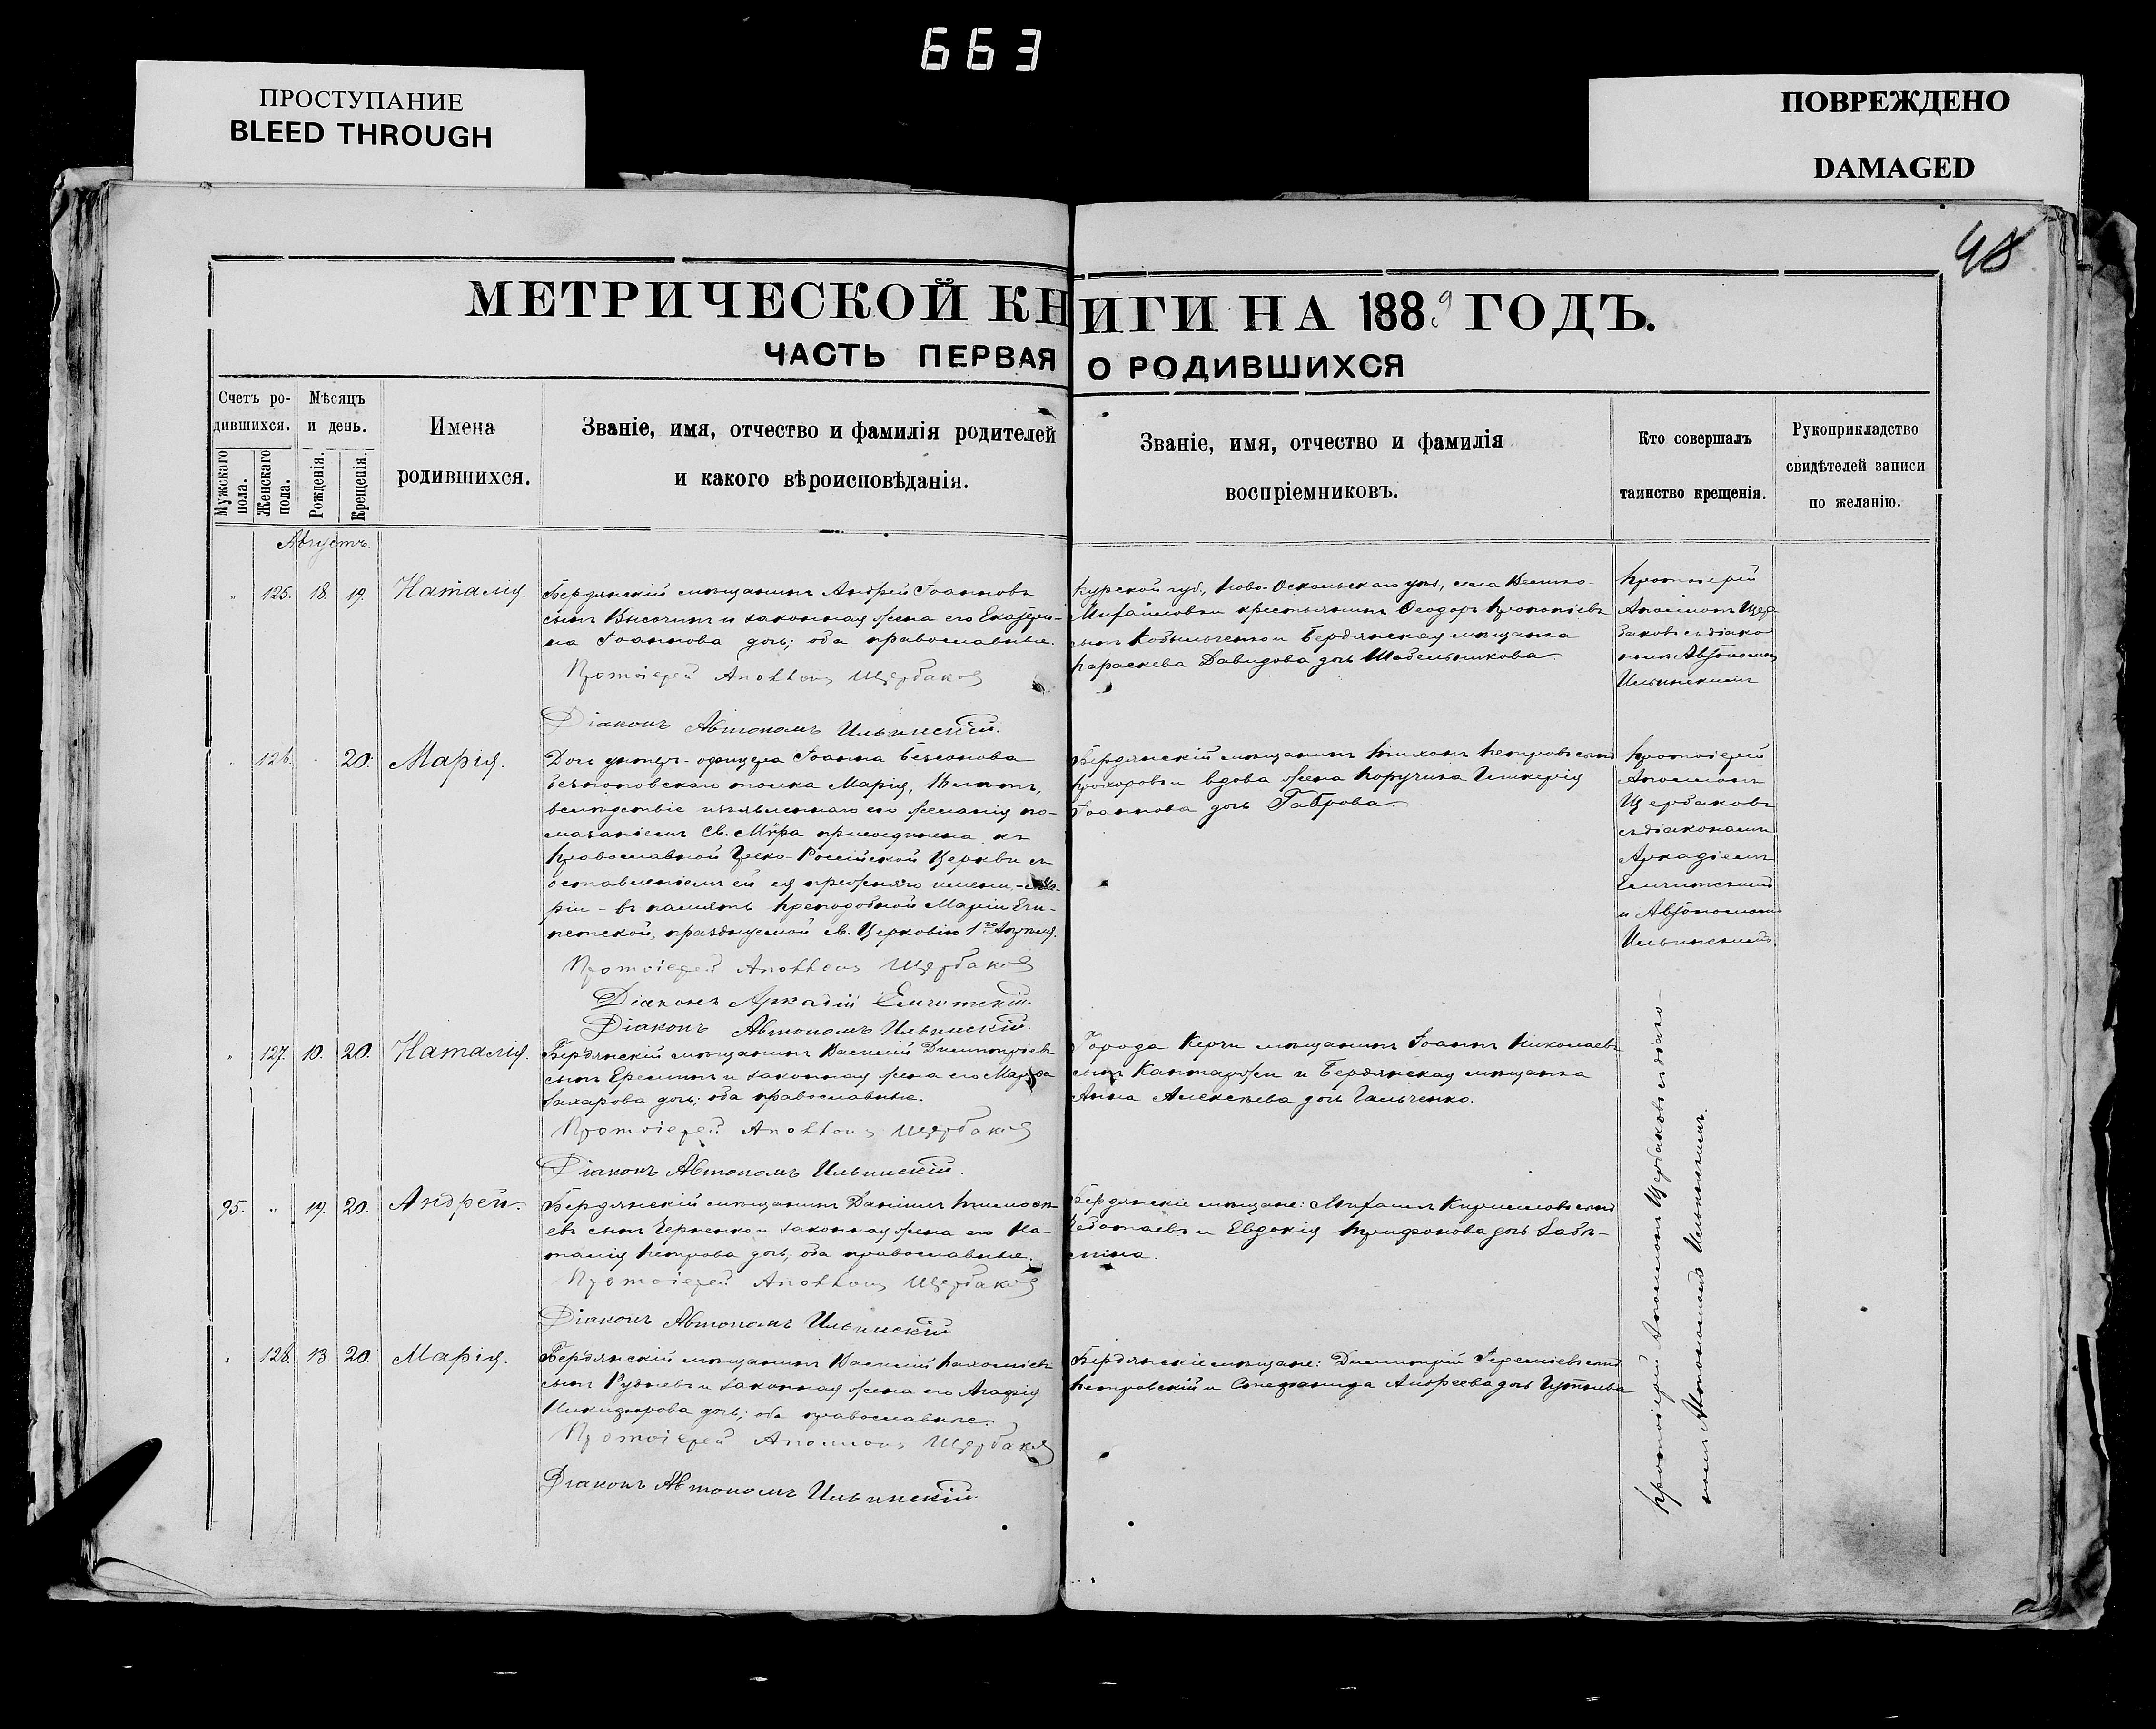 663
ПРОСТУПАНИЕ
BLEED THROUGH
ПОВРЕЖДЕНО
DAMAGED
48
МЕТРИЧЕСКОЙ КНИГИ НА 1889 ГОДЪ.
ЧАСТЬ ПЕРВАЯ О РОДИВШИХСЯ
Счетъ ро-
дившихся.
Мужскаго пола.
Женскаго пола.
Мѣсяцъ
и день.
Рожденія.
Крещенія.
Имена
родившихся.
Званіе, имя, отчество и фамилія родителей
и какого вѣроисповѣданія.
Званіе, имя, отчество и фамилія
воспріемниковъ.
Кто совершалъ
таинство крещенія.
Рукоприкладство
свидѣтелей записи
по желанію.
Августъ.
125. 18. 19. Наталія.
Бердянскій мѣщанинъ Андрей Іоанновъ
сынъ Высочинъ и законная жена его Екатери-
на Іоаннова дочь; оба православные.
Протоіерей Аполлонъ Щербаковъ
Діаконъ Автономъ Ильинскій.
Курской губ., Ново-Оскольскаго уѣз., села
Михайловки крестьянинъ Ѳеодоръ Прокопіевъ
сынъ Кобыльченко и Бердянская мѣщанка
Параскева Давидова дочь Шабельникова.
Протоіерей
Аполлонъ Щер-
баковъ съ діако-
номъ Автономомъ
Ильинскимъ
126. 20. Марія.
Дочь унтеръ-офицера Іоанна Безсонова
безпоповскаго толка Марія,
вслѣдствіе изъявленнаго ею желанія по-
мазаніемъ Св. Мѵра присоединена къ
Православной Греко-Россійской Церкви съ
оставленіемъ ей ея прежняго имени, - Ма-
ріи - въ память преподобной Маріи Еги-
петской, празднуемой св. Церковію 1го Апрѣля.
Протоіерей Аполлонъ Щербаковъ
Діаконъ Аркадій Емчитскій.
Діаконъ Автономъ Ильинскій.
Бердянскій мѣщанинъ Тихонъ Петровъ сынъ
Прохоровъ и вдова жена Поручика Гликерія
Іоаннова дочь Габрова.
Протоіерей
Аполлонъ
Щербаковъ
съ діаконами
Аркадіемъ
Емчитскимъ
и Автономомъ
Ильинскимъ.
127. 10. 20. Наталія.
Бердянскій мѣщанинъ Василій Димитріевъ
сынъ Ереминъ и законная жена его Марѳа
Захарова дочь; оба православные.
Протоіерей Аполлонъ Щербаковъ
Діаконъ Автономъ Ильинскій.
Города Керчи мѣщанинъ Іоаннъ Николаевъ
сынъ Кантаржи и Бердянская мѣщанка
Анна Алексѣева дочь Гальченко.
95. 19. 20. Андрей.
Бердянскій мѣщанинъ Даніилъ Тимоѳе-
евъ сынъ Черненко и законная жена его На-
талія Петрова дочь; оба православные.
Протоіерей Аполлонъ Щербаковъ
Діаконъ Автономъ Ильинскій
Бердянскіе мѣщане: Михаилъ Кирилловъ сынъ
Чеботаевъ и Евдокія Трифонова дочь
128. 13. 20. Марія.
Бердянскій мѣщанинъ Василій Пахоміевъ
сынъ Рудневъ и законная жена его Агафія
Никифорова дочь; оба православные.
Протоіерей Аполлонъ Щербаковъ
Діаконъ Автономъ Ильинскій.
Бердянскіе мѣщане: Димитрій Іереміевъ сынъ
Петровскій и Стефанида Андреева дочь
Протоіерей Аполлонъ Щербаковъ съ діако-
номъ Автономомъ Ильинскимъ.